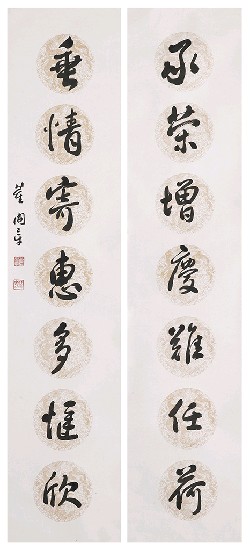 承荣增庆难任荷
垂情寄惠多惬欣